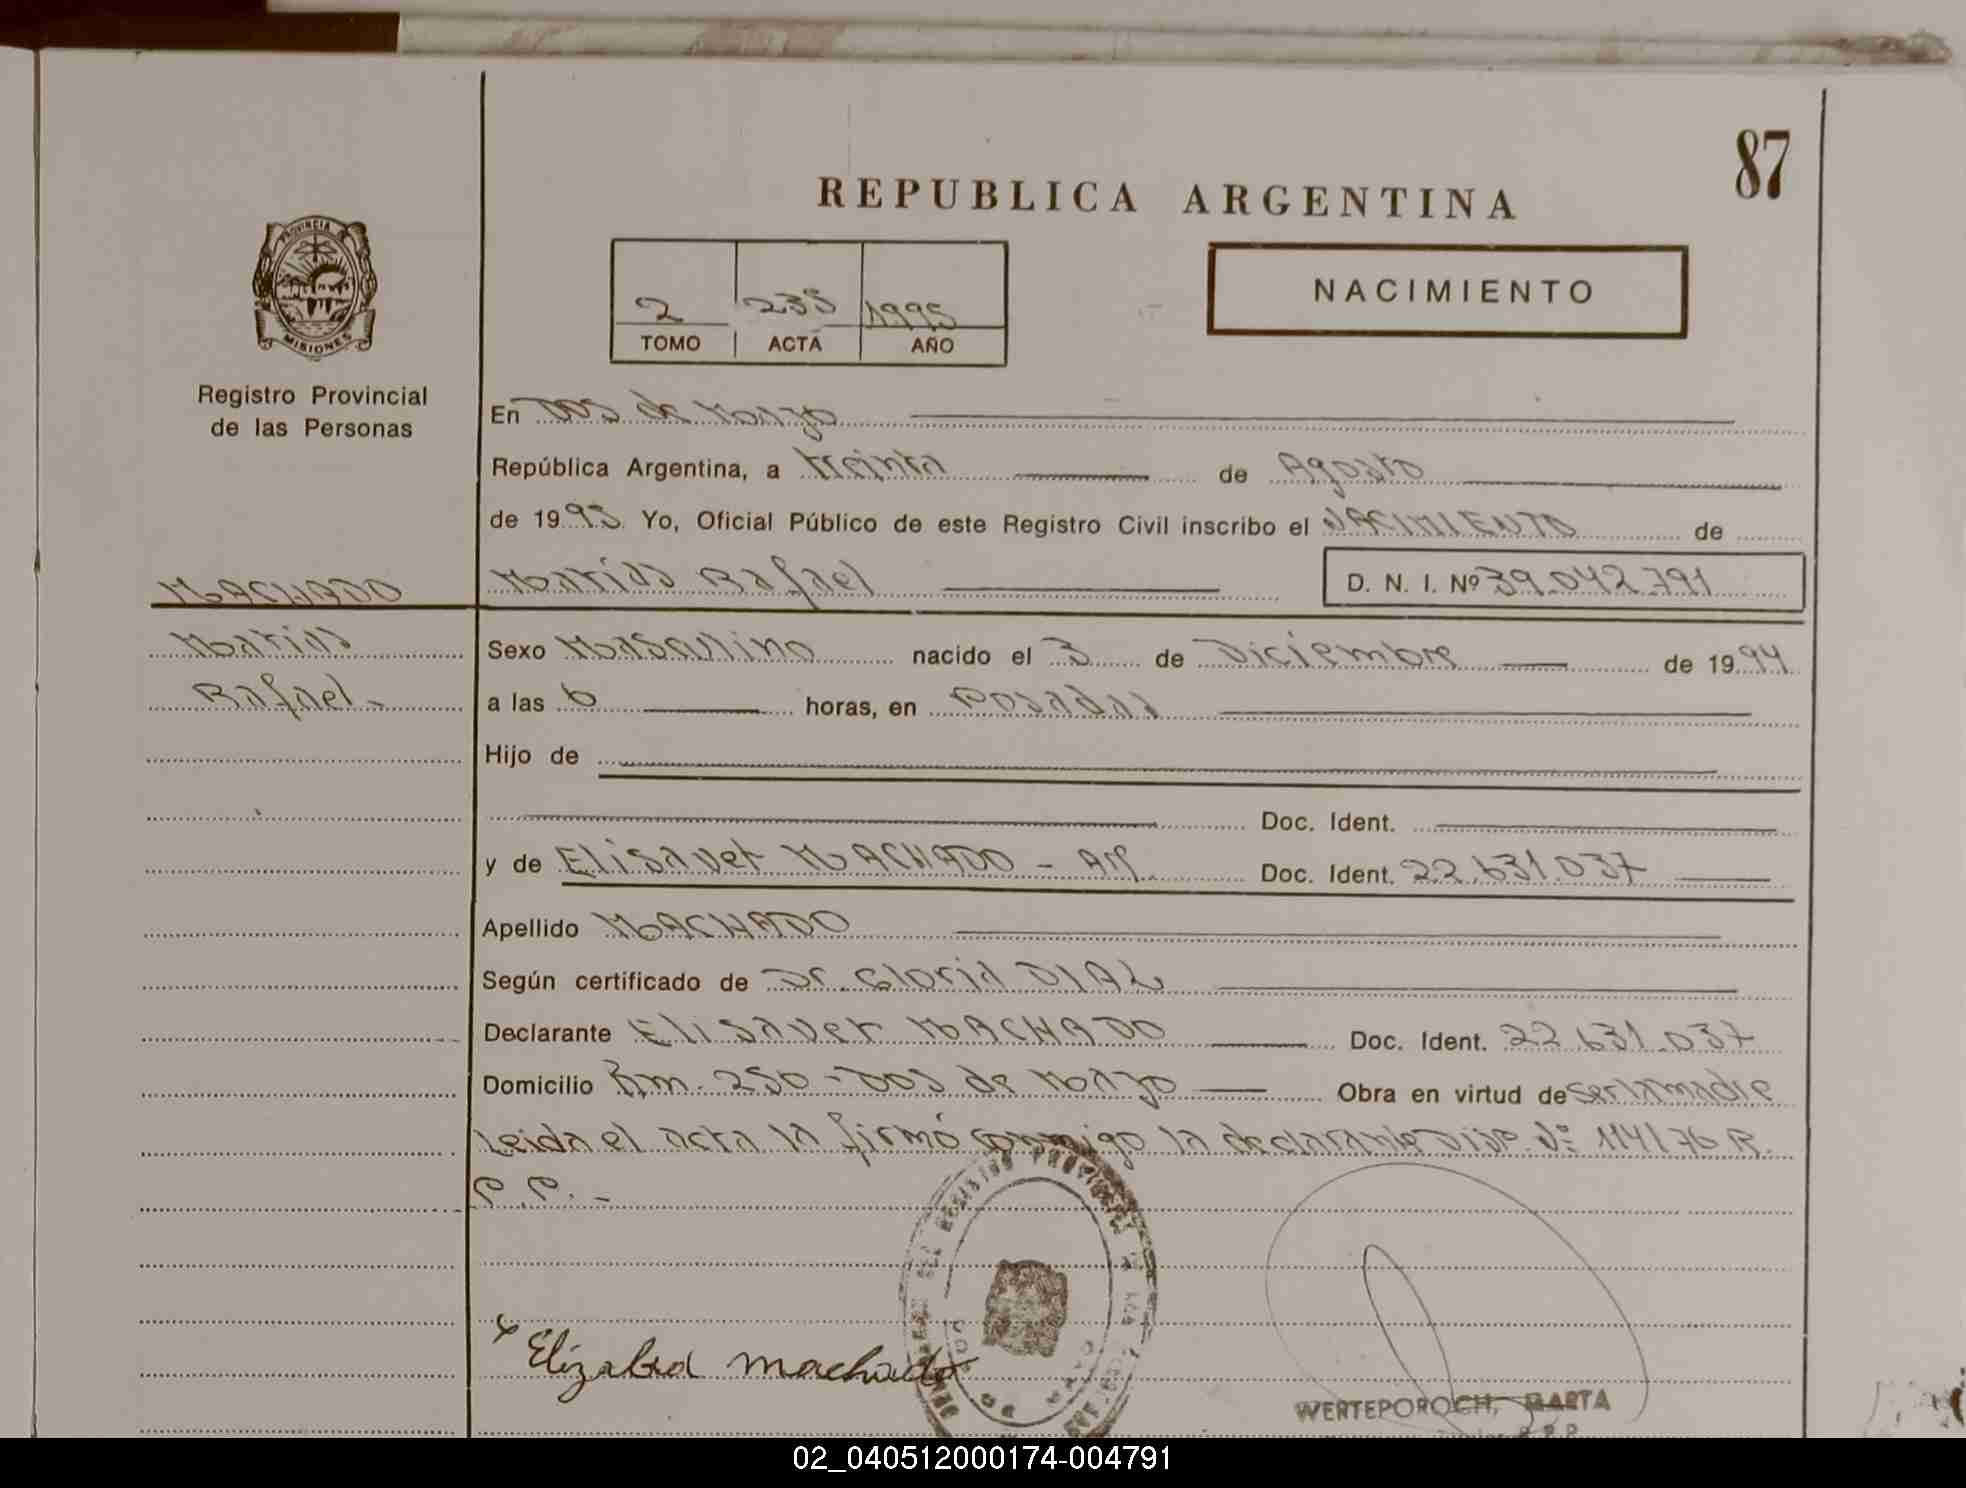 87
REPUBLICA ARGENTINA
PROVINCIA DE
MISIONES
Registro Provincial
de las Personas
2 235 1995
TOMO ACTA AÑO
NACIMIENTO
En Dos de Mayo
República Argentina, a treinta de Agosto
de 1995 Yo, Oficial Público de este Registro Civil inscribo el NACIMIENTO de
Matias Rafael D. N. I. Nº 39.042.791
MACHADO
Matias
Rafael.-
Sexo Masculino nacido el 3 de Diciembre de 1994
a las 6 horas, en Posadas
Hijo de
Doc. Ident.
y de Elisavet MACHADO - Ar. Doc. Ident. 22.631.037
Apellido MACHADO
Según certificado de Dr. Gloria DIAZ
Declarante Elisavet MACHADO Doc. Ident. 22.631.037
Domicilio Km. 250 - Dos de Mayo Obra en virtud de ser la madre
Leida el acta la firmó conmigo la declarante Disp. Nº 114/76 R.
P.P.-
Machado
WERTEPOROCH, MARTA
02_040512000174-004791